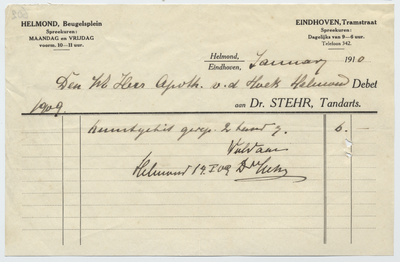 HELMOND, Beugelsplein
Spreekuren:
MAANDAG en VRIJDAG
voorm. 10—11 uur.
EINDHOVEN, Tramstraat
Spreekuren:
Dagelijks van 9—6 uur.
Telefoon 342.
Helmond,
Eindhoven, January 1910
Den W Heer Apoth. v. d. Hoek Helmond Debet
aan Dr. STEHR, Tandarts.
1909.
kunstgebit gerep. 2 6.—
Voldaan
Helmond 19.I 09 Dr Stehr